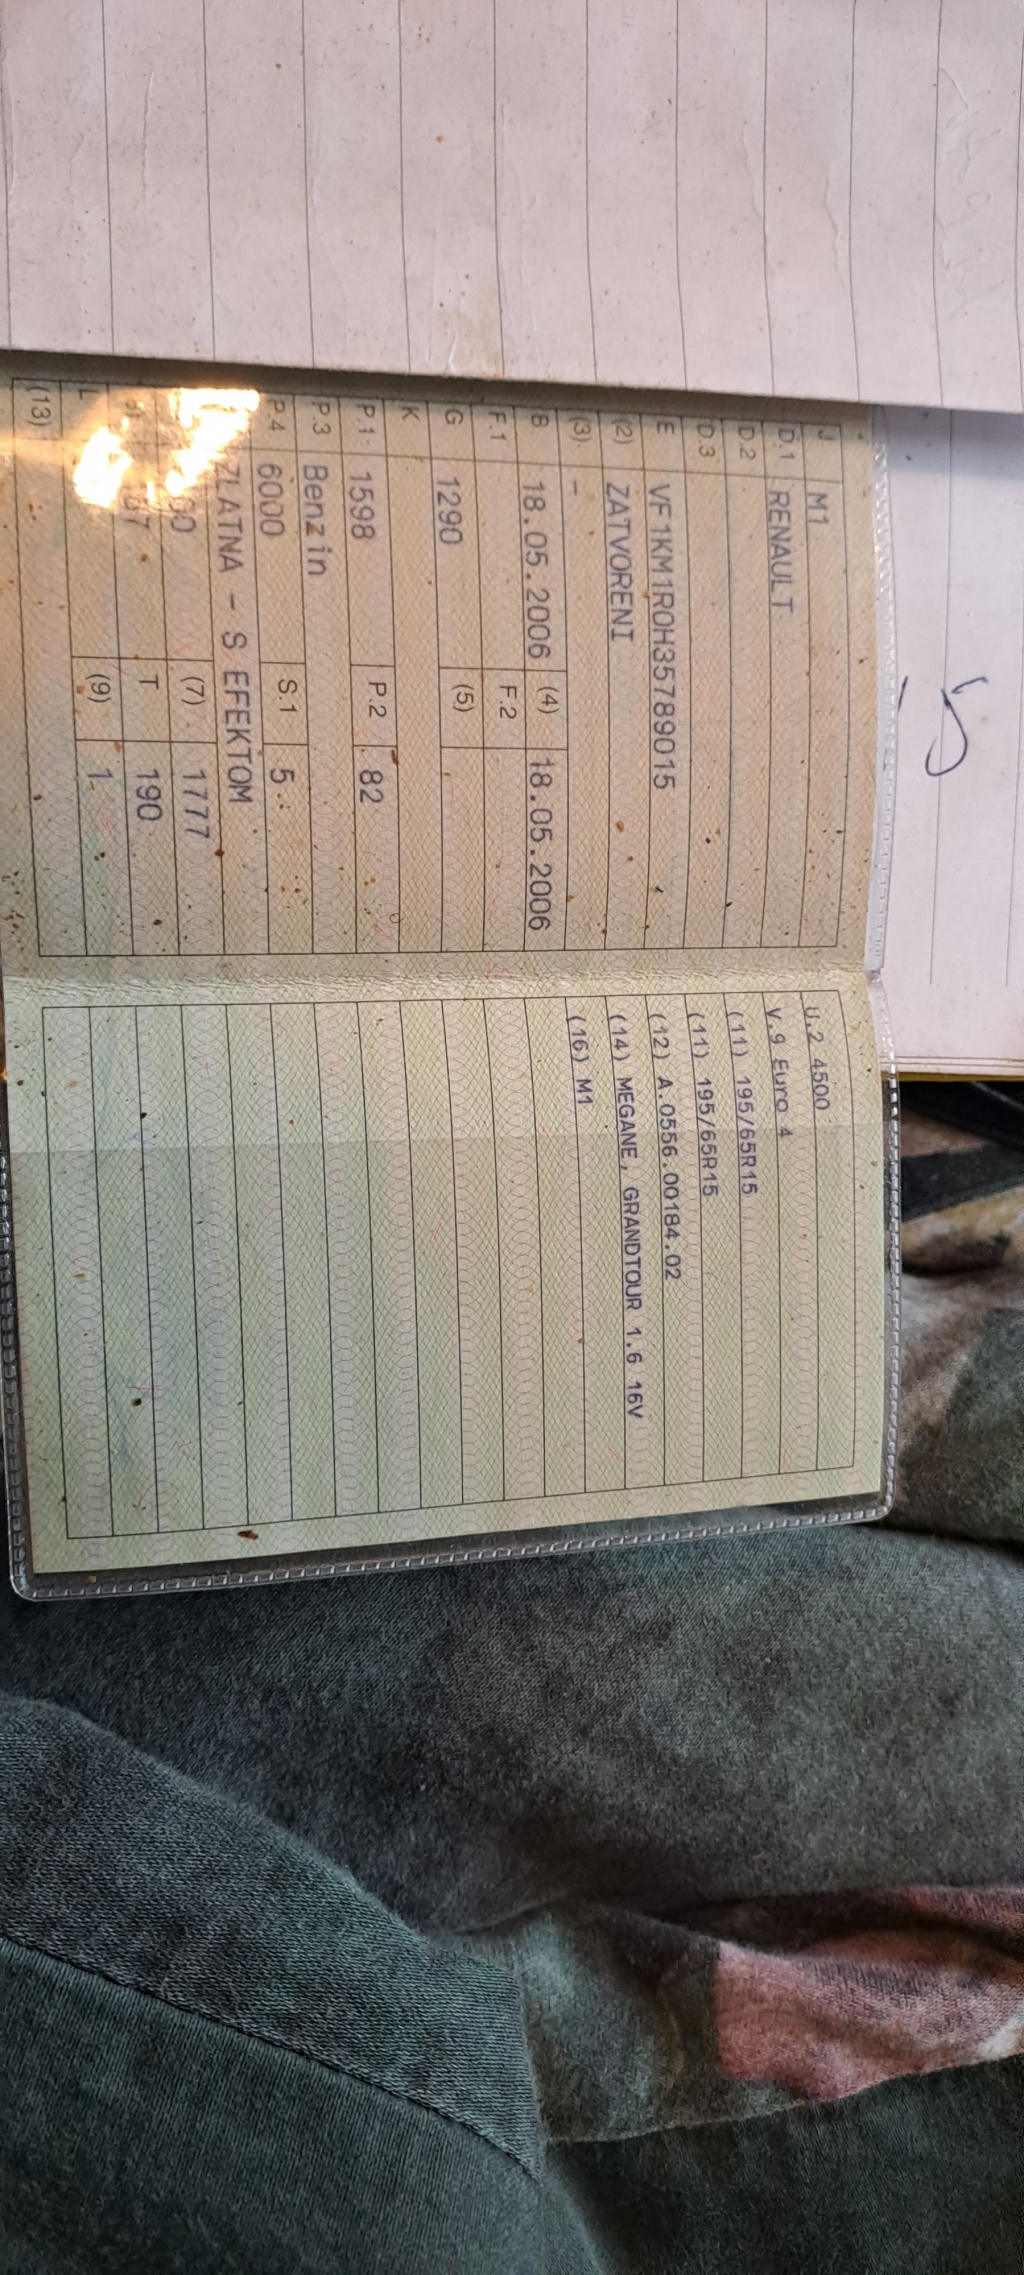 J M1
D.1 RENAULT
D.2
D.3
E VF1KM1R0H35789015
(2) ZATVORENI
(3) -
B 18.05.2006 (4) 18.05.2006
F.1 F.2
G 1290 (5)
K
P.1 1598 P.2 82
P.3 Benzin
P.4 6000 S.1 5
ZLATNA - S EFEKTOM
(7) 1777
T 190
L (9) 1
(13)
U.2 4500
V.9 Euro 4
(11) 195/65R15
(11) 195/65R15
(12) A.0556.00184.02
(14) MEGANE, GRANDTOUR 1.6 16V
(16) M1